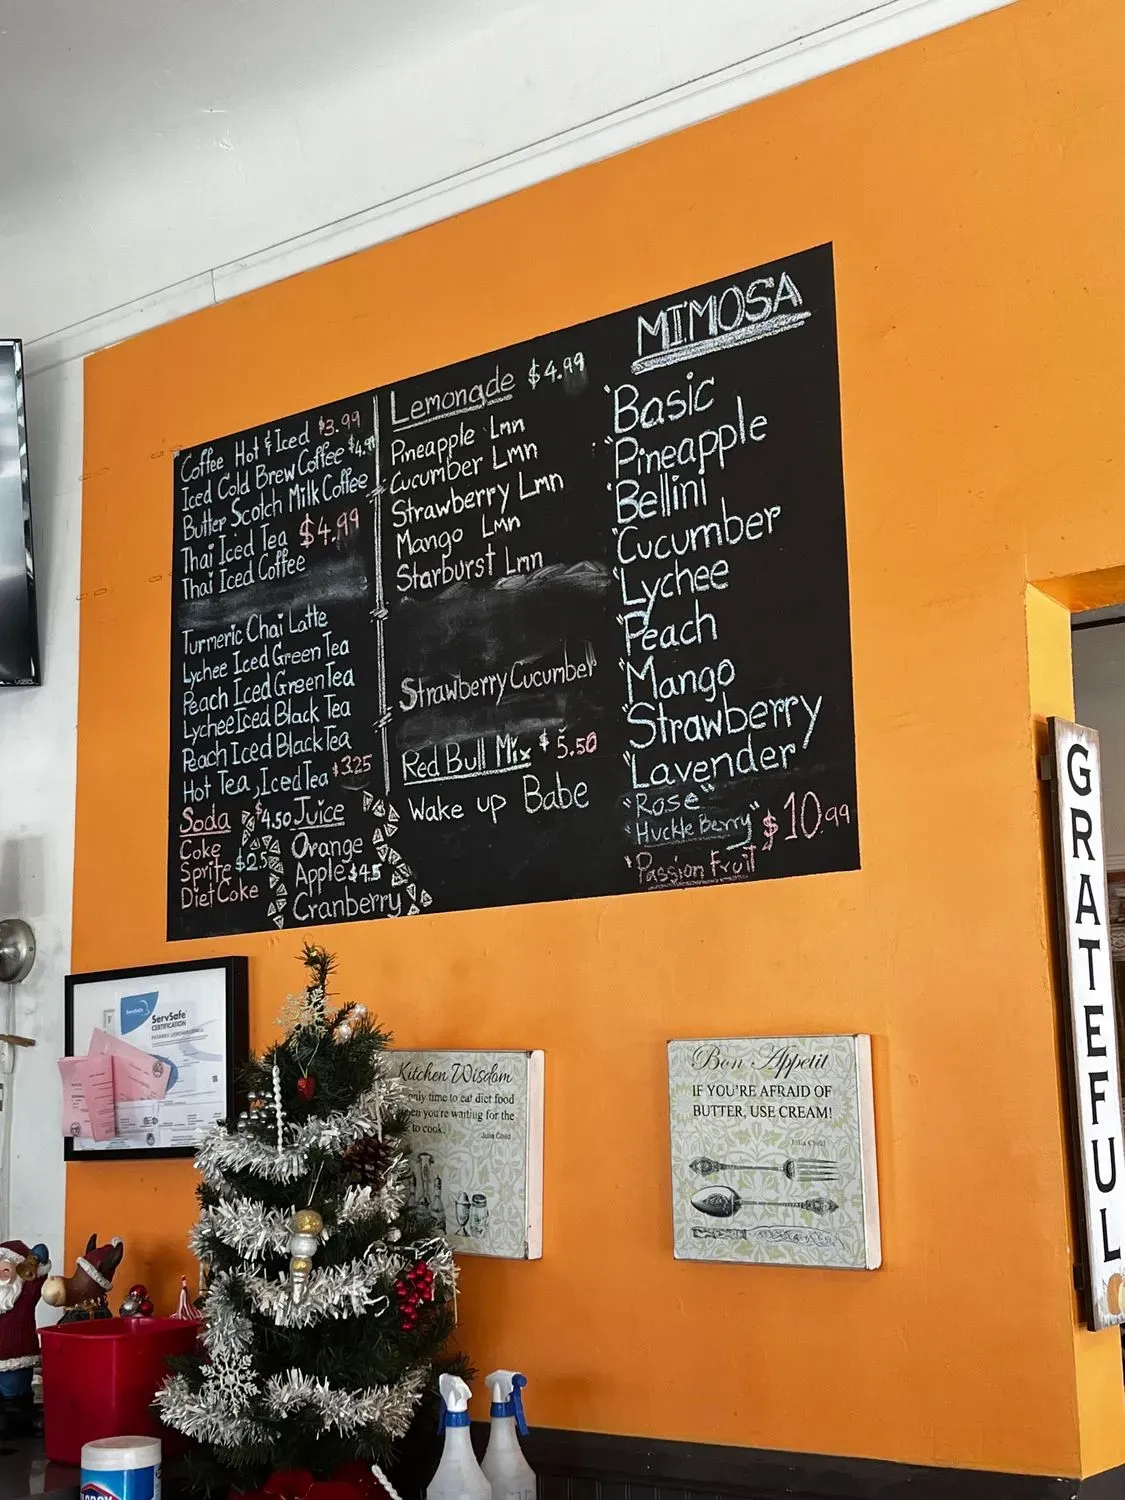 Coffee Hot & Iced $3.99
Iced Cold Brew Coffee $4.99
Butter Scotch Milk Coffee
Thai Iced Tea $4.99
Thai Iced Coffee
Turmeric Chai Latte
Lychee Iced Green Tea
Peach Iced Green Tea
Lychee Iced Black Tea
Peach Iced Black Tea
Hot Tea, Iced Tea $3.25
Soda
Coke
Sprite $2.5
Diet Coke
$4.50 Juice
Orange
Apple $4.5
Cranberry
Lemonade $4.99
Pineapple Lmn
Cucumber Lmn
Strawberry Lmn
Mango Lmn
Starburst Lmn
Strawberry Cucumber
Red Bull Mix $5.50
Wake up Babe
MIMOSA
Basic
Pineapple
Bellini
Cucumber
Lychee
Peach
Mango
Strawberry
Lavender
"Rose"
"Huckle Berry" $10.99
"Passion Fruit"
ServSafe
ServSafe
CERTIFICATION
Kitchen Wisdom
only time to eat diet food
when you're waiting for the
to cook.
Julia Child
Bon Appetit
IF YOU'RE AFRAID OF
BUTTER, USE CREAM!
Julia Child
GRATEFUL
VIZIO
CLOROX